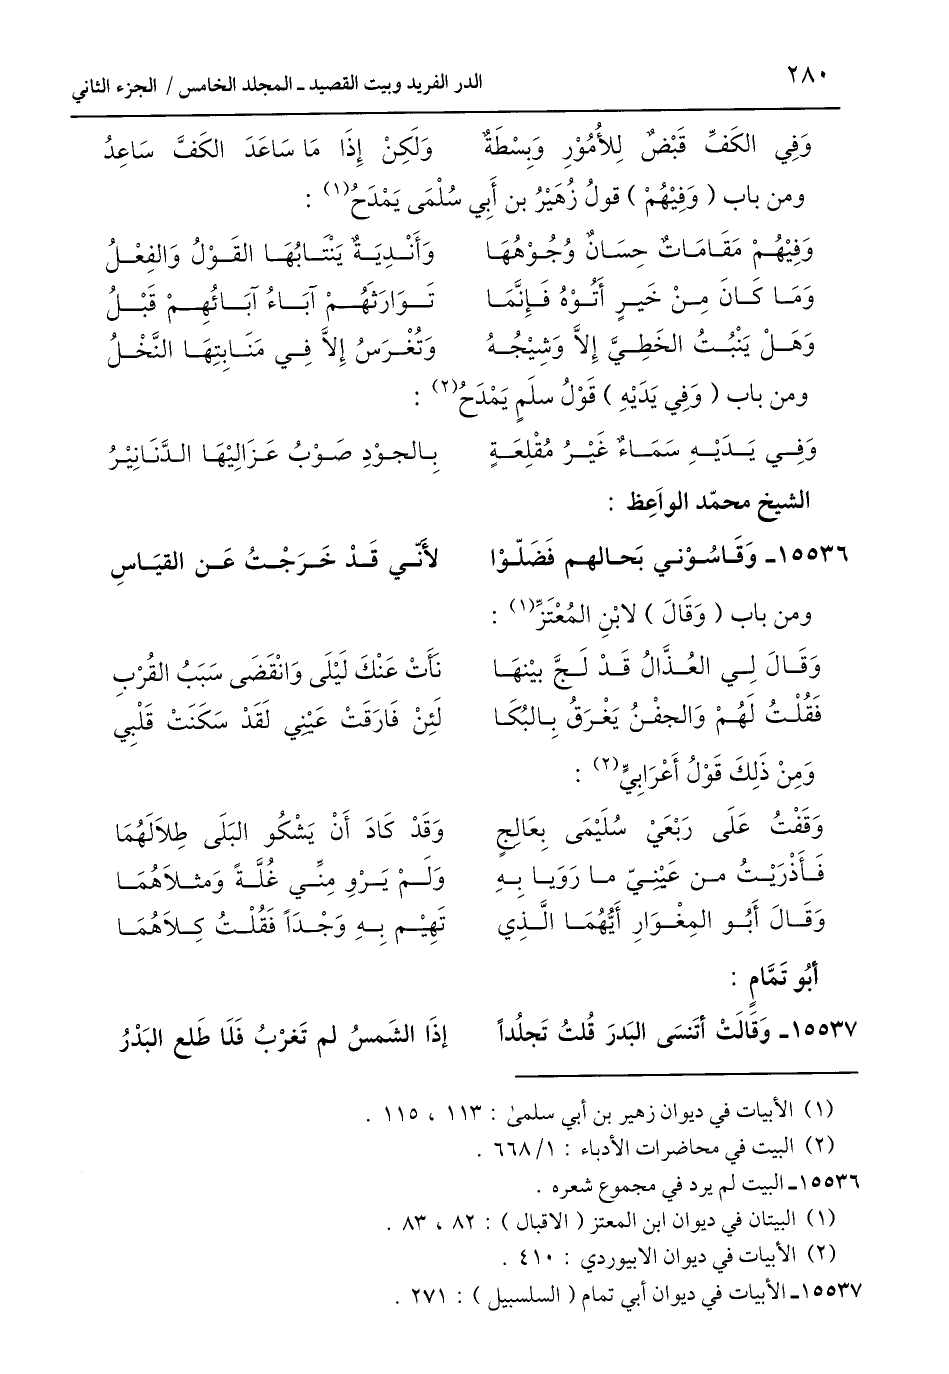 ٢٨٠ الدر الفريد وبيت القصيد ـ المجلد الخامس / الجزء الثاني
وَفِي الكَفِّ قَبْضٌ لِلأُمُوْرِ وَبِسْطَةٌ وَلَكِنْ إِذَا مَا سَاعَدَ الكَفَّ سَاعِدُ
ومن باب ( وَفِيْهُمْ ) قولُ زُهَيْرُ بن أَبِي سُلْمَى يَمْدَحُ(١) :
وَفِيْهُمْ مَقَامَاتٌ حِسَانٌ وُجُوْهُهَا وَأَنْدِيَةٌ يَنْتَابُهَا القَوْلُ وَالفِعْلُ
وَمَا كَانَ مِنْ خَيرٍ أَتُوْهُ فَإِنَّمَا تَوَارَثَهُمْ آبَاءُ آبَائُهِمْ قَبْلُ
وَهَلْ يَنْبُتُ الخَطِيَّ إِلاَّ وَشِيْجُهُ وَتُغْرَسُ إِلاَّ فِي مَنَابِتِهَا النَّخْلُ
ومن باب ( وَفِي يَدَيْهِ ) قَوْلُ سلَمٍ يَمْدَحُ(٢) :
وَفِي يَدَيْهِ سَمَاءٌ غَيْرُ مُقْلِعَةٍ بِالجوْدِ صَوْبُ عَزَالِيْهَا الدَّنَانِيْرُ
الشيخ محمّد الواَعِظ :
١٥٥٣٦ـ وَقَاسُوْني بَحالهِم فَضَلّوْا لأَنِّي قَدْ خَرَجْتُ عَن القيَاسِ
ومن باب ( وَقَالَ ) لابْنِ المُعْتَزِّ(١) :
وَقَالَ لِي العُذَّالُ قَدْ لَجَّ بيْنهَا نَأَتْ عَنْكَ لَيْلَى وَانْقَضَى سَبَبُ القُرْبِ
فَقُلْتُ لَهُمْ وَالجفْنُ يَغْرَقُ بِالبُكَا لَئِنْ فَارَقَتْ عَيْنِي لَقَدْ سَكَنَتْ قَلْبِي
وَمِنْ ذَلِكَ قَوْلُ أَعْرَابِيٍّ(٢) :
وَقَفْتُ عَلَى رَبْعَيْ سُلَيْمَى بِعَالِجٍ وَقَدْ كَادَ أَنْ يَشْكُو البَلَى طِلاَلَهُمَا
فَأَذْرَيْتُ من عَيْنِيّ ما رَوَيا بِهِ وَلَمْ يَرْوِ مِنِّي غُلَّةً وَمثلاَهُمَا
وَقَالَ أَبُو المِغْوَارِ أَيُّهُمَا الَّذِي تَهِيْمِ بِهِ وَجْداً فَقُلْتُ كِلاَهُمَا
أبُو تَمَّامٍ :
١٥٥٣٧ـ وَقَالَتْ أتَنسَى البَدرَ قُلتُ تَجلُداً إذَا الشَمسُ لم تَغرُبْ فَلَا طَلع البَدْرُ
(١) الأبيات في ديوان زهير بن أبي سلمىٰ : ١١٣ ، ١١٥ .
(٢) البيت في محاضرات الأدباء : ١/ ٦٦٨ .
١٥٥٣٦ـ البيت لم يرد في مجموع شعره .
(١) البيتان في ديوان ابن المعتز ( الاقبال ) : ٨٢ ، ٨٣ .
(٢) الأبيات في ديوان الابيوردي : ٤١٠ .
١٥٥٣٧ـ الأبيات في ديوان أبي تمام ( السلسبيل ) : ٢٧١ .